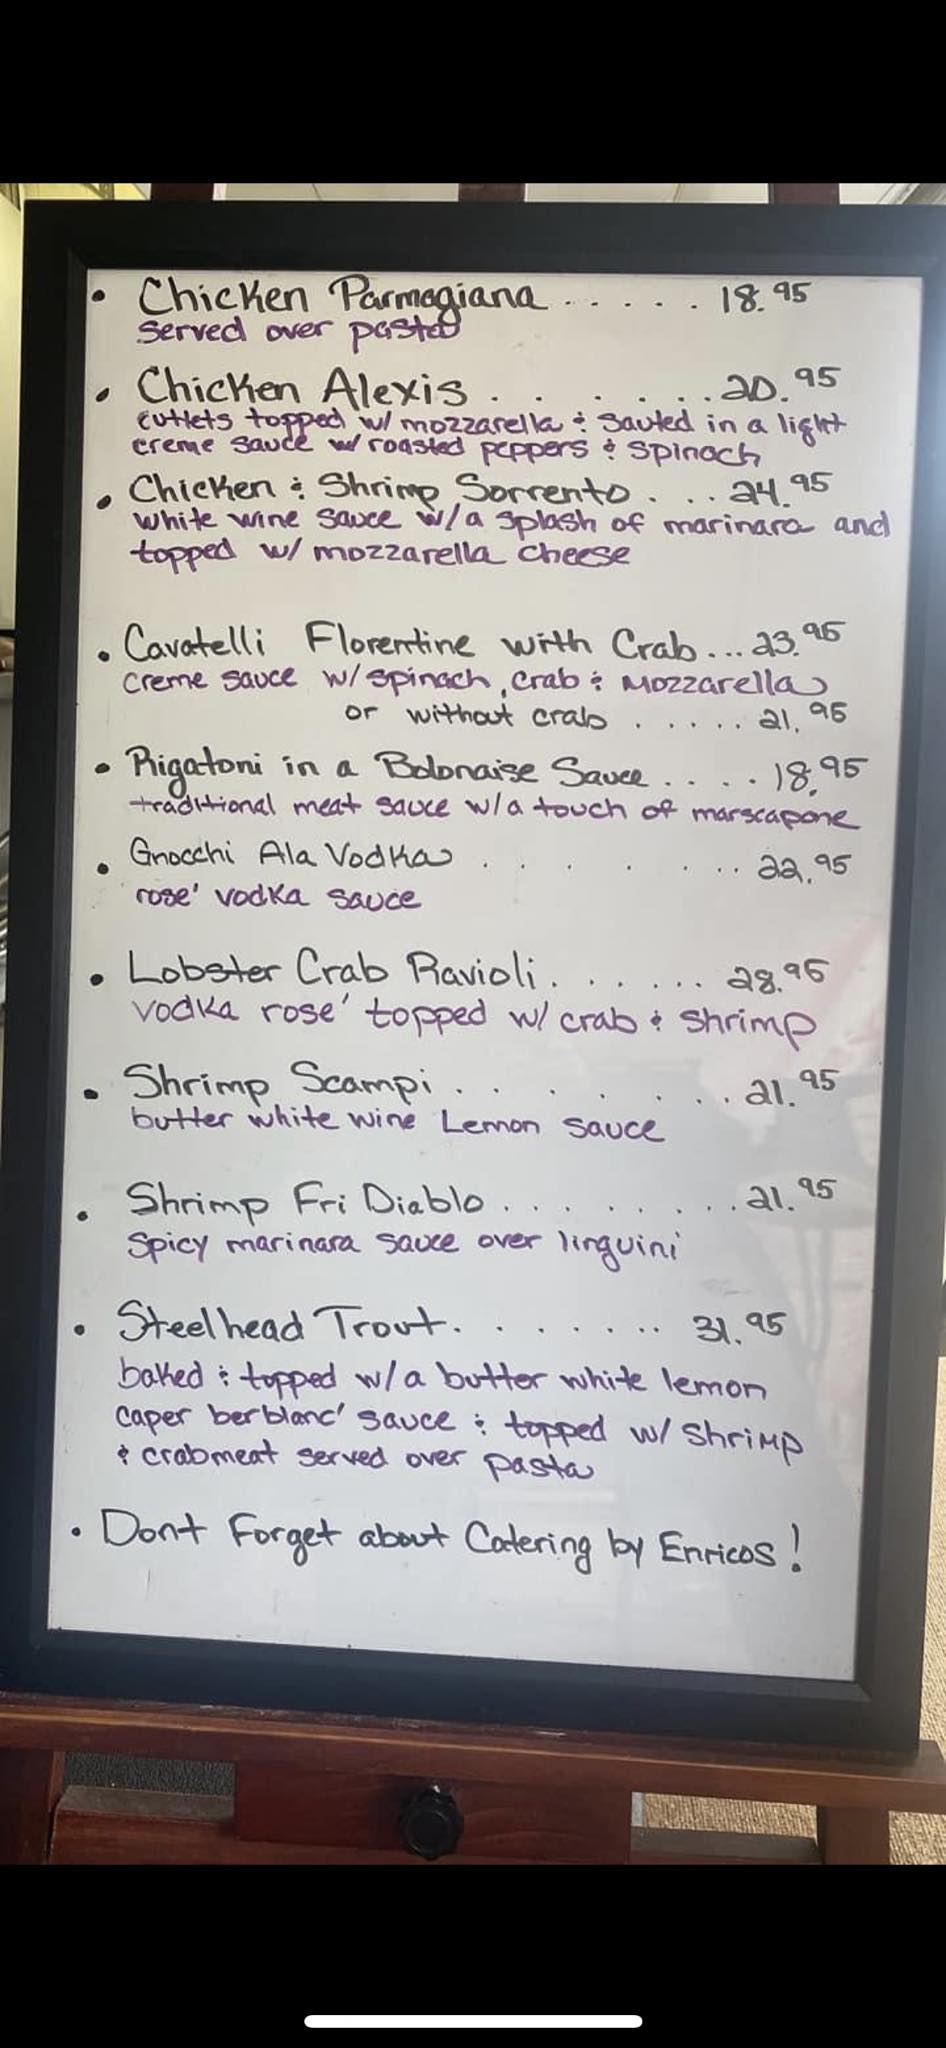 • Chicken Parmagiana . . . . . 18.95
served over pasta
• Chicken Alexis . . . . . . . 20.95
cutlets topped w/ mozzarella & Sauted in a light
creme sauce w/ roasted peppers & Spinach
• Chicken & Shrimp Sorrento . . . 24.95
white wine sauce w/a splash of marinara and
topped w/ mozzarella cheese
• Cavatelli Florentine with Crab ... 23.95
creme sauce w/ spinach, crab & Mozzarella
or without crab . . . . . 21.95
• Rigatoni in a Bolonaise Sauce . . . . 18.95
traditional meat sauce w/a touch of marscapone
• Gnocchi Ala Vodka . . . . . . . 22.95
rose' vodka sauce
• Lobster Crab Ravioli . . . . . . . 28.95
vodka rose' topped w/ crab & shrimp
• Shrimp Scampi . . . . . . . . 21.95
butter white wine Lemon sauce
• Shrimp Fri Diablo . . . . . . . . . 21.95
Spicy marinara sauce over linguini
• Steelhead Trout . . . . . . . . 31.95
baked & topped w/a butter white lemon
caper berblanc' sauce & topped w/ Shrimp
& crabmeat served over pasta
• Dont Forget about Catering by Enricos!